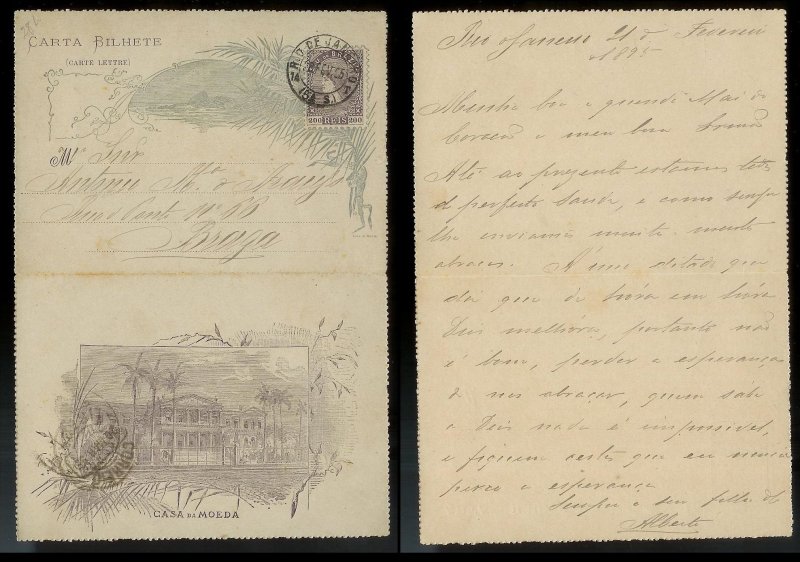 CARTA BILHETE
(CARTE LETTRE)
RIO DE JANEIRO
BRAZIL
200 REIS 200
Mr. Snr
Antonio M.ª d'Araujo
Rua do Conto Nº 68
Braga
CASA DA MOEDA
Rio Janeiro 21 de Fevereiro
1895
Minha boa e querida Mai do
Coração e meu bom Irmão
Até ao presente estamos todos
de perfeita saude, e como sempre
lhe enviamos muito muito
abraços. Á um ditado que
diz que de hóra em hóra
Deus melhóra, portanto não
é bom, perder a esperança
de nos abraçar, quem sabe
a Deus nada é impossivel,
e fiquem certos que eu nunca
perco a esperança
Sempre o seu filho do
Alberto